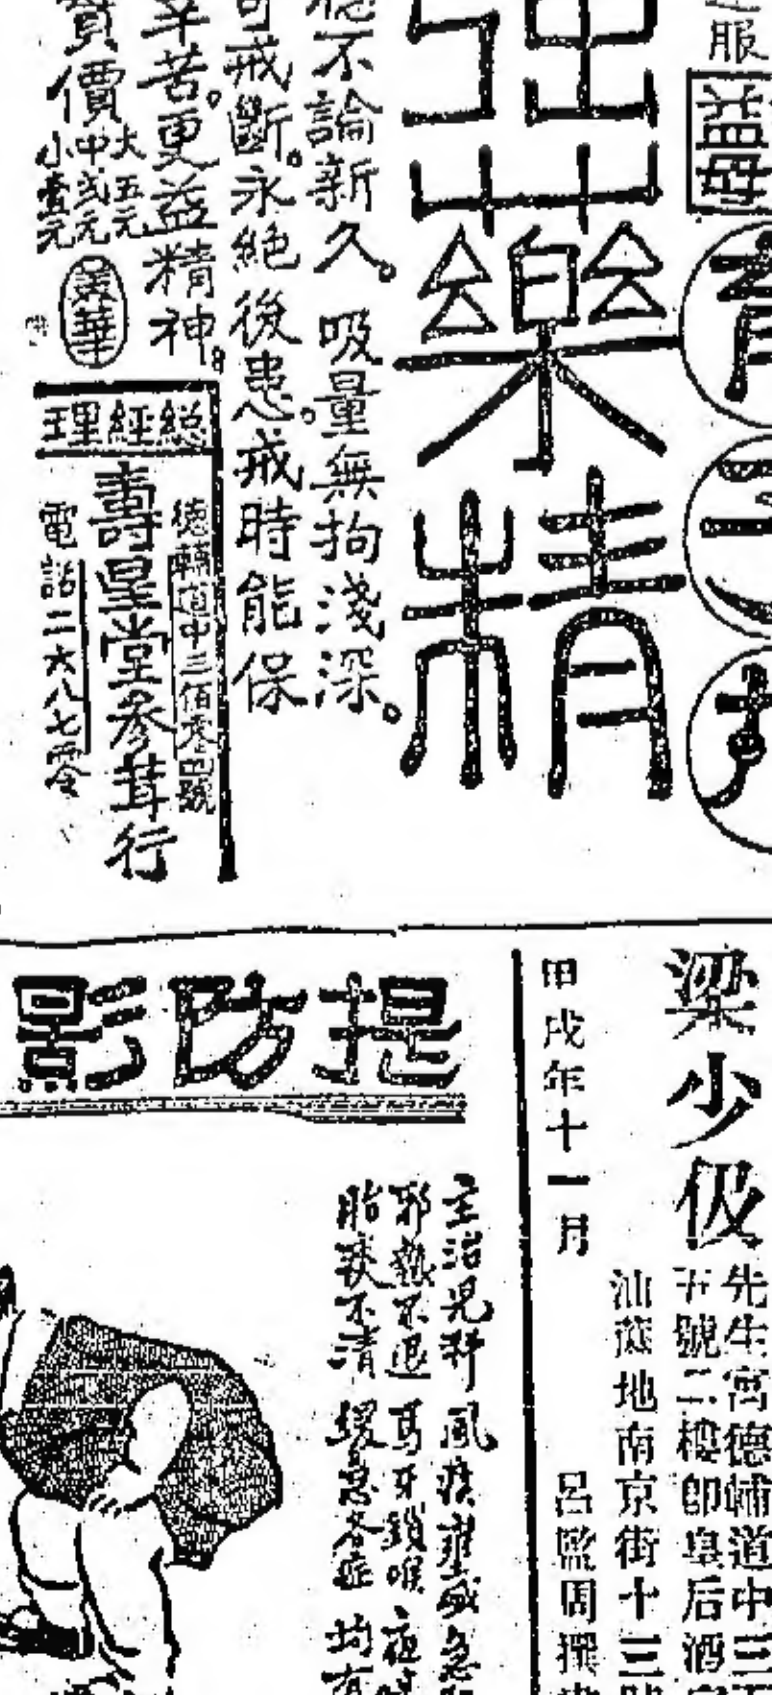 服
益母
樂精
不論新久。吸量無拘淺深。
戒斷。永絕後患。戒時能保
辛苦。更益精神。
價大五元中弍元小壹元
美華
總經理
德輔道中三佰零四號
壽星堂參茸行
電話二六八七零
梁少伋
先生寓德輔道中三
五號二樓即皇后酒
汕蔴地南京街十三號
甲戌年十一月
呂監周撰
提防影
主治兒科風痰壅盛急
邪熱不退馬牙鎖喉夜
胎痰不清緩急各症均有